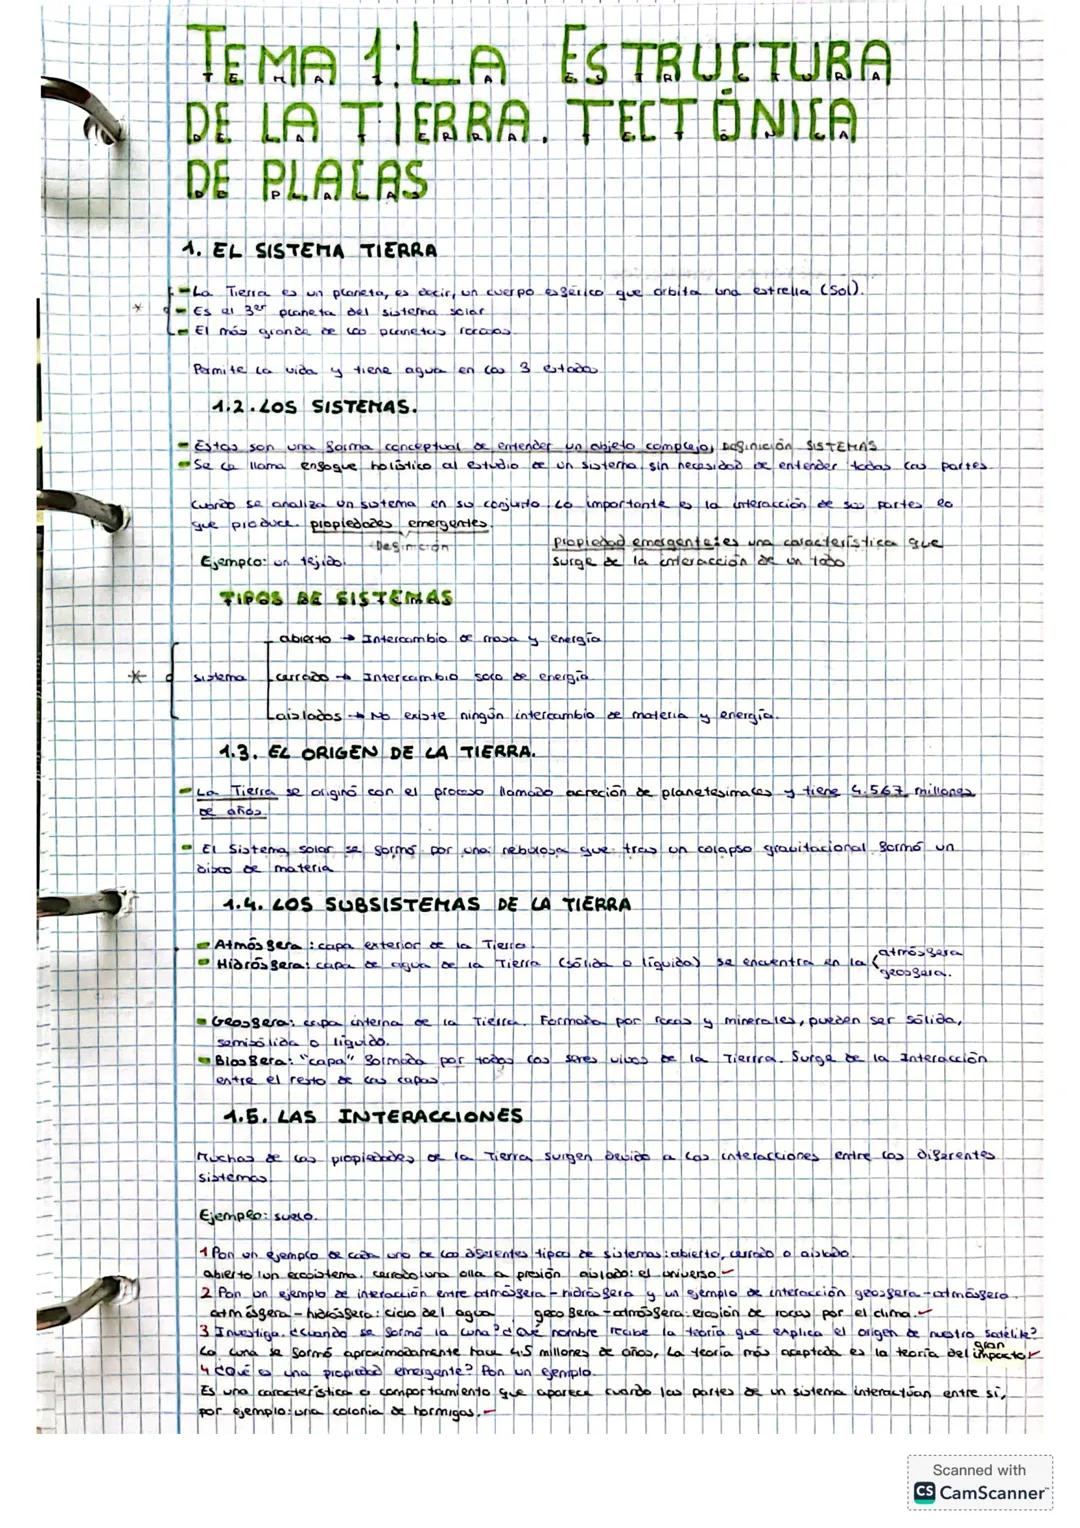 TEMA 1: LA ESTRUCTURA
DE LA TIERRA. TECTÓNICA
DE PLACAS
1. EL SISTEMA TIERRA
La Tierra es un planeta, es decir, un cuerpo esférico que orbita una estrella (Sol).
* Es el 3er planeta del sistema solar
El más grande de los planetas rocosos.
Permite la vida y tiene agua en los 3 estados
1.2. LOS SISTEMAS.
Estas son una forma conceptual de entender un objeto complejo, Definición SISTEMAS
Se le llama enfoque holístico al estudio de un sistema sin necesidad de entender todas las partes.
Cuando se analiza un sistema en su conjunto. Lo importante es la interacción de sus partes lo
que produce propiedades emergentes.
Definición
propiedad emergente: es una característica que
Ejemplo: un tejido.
surge de la interacción de un todo
TIPOS DE SISTEMAS
abierto → Intercambio de masa y energía
* sistema cerrado → Intercambio solo de energía
aislados → No existe ningún intercambio de materia y energía.
1.3. EL ORIGEN DE LA TIERRA.
La Tierra se originó con el proceso llamado acreción de planetesimales y tiene 4.567 millones
de años.
El Sistema solar se formó por una nebulosa que tras un colapso gravitacional formó un
disco de materia
1.4. LOS SUBSISTEMAS DE LA TIERRA
Atmósfera: capa exterior de la Tierra.
Hidrósfera: capa de agua de la Tierra (sólida o líquida) se encuentra en la { atmósfera
geosfera.
Geosfera: capa interna de la Tierra. Formada por rocas y minerales, pueden ser sólida,
semisólida o líquido.
Biosfera: "capa" formada por todos los seres vivos de la Tierrra. Surge de la Interacción
entre el resto de las capas.
1.5. LAS INTERACCIONES
Muchas de las propiedades de la Tierra surgen devido a las interacciones entre los diferentes
sistemas.
Ejemplo: suelo.
1 Pon un ejemplo de cada uno de los diferentes tipos de sistemas: abierto, cerrado o aislado.
abierto: un ecosistema. cerrado: una olla a presión aislado: el universo.
2 Pon un ejemplo de interacción entre atmósfera-hidrósfera y un ejemplo de interacción geosfera-atmósfera.
atmósfera-hidrósfera: ciclo del agua geosfera-atmósfera: erosión de rocas por el clima.
3 Investiga. ¿Cuándo se formó la luna? ¿Qué nombre recibe la teoría que explica el origen de nuestro satélite?
La luna se formó aproximadamente hace 4,5 millones de años, La teoría más aceptada es la teoría del gran impacto
4 ¿Qué es una propiedad emergente? Pon un ejemplo.
Es una característica o comportamiento que aparece cuando las partes de un sistema interactúan entre sí,
por ejemplo: una colonia de hormigas.
Scanned with
CS CamScanner